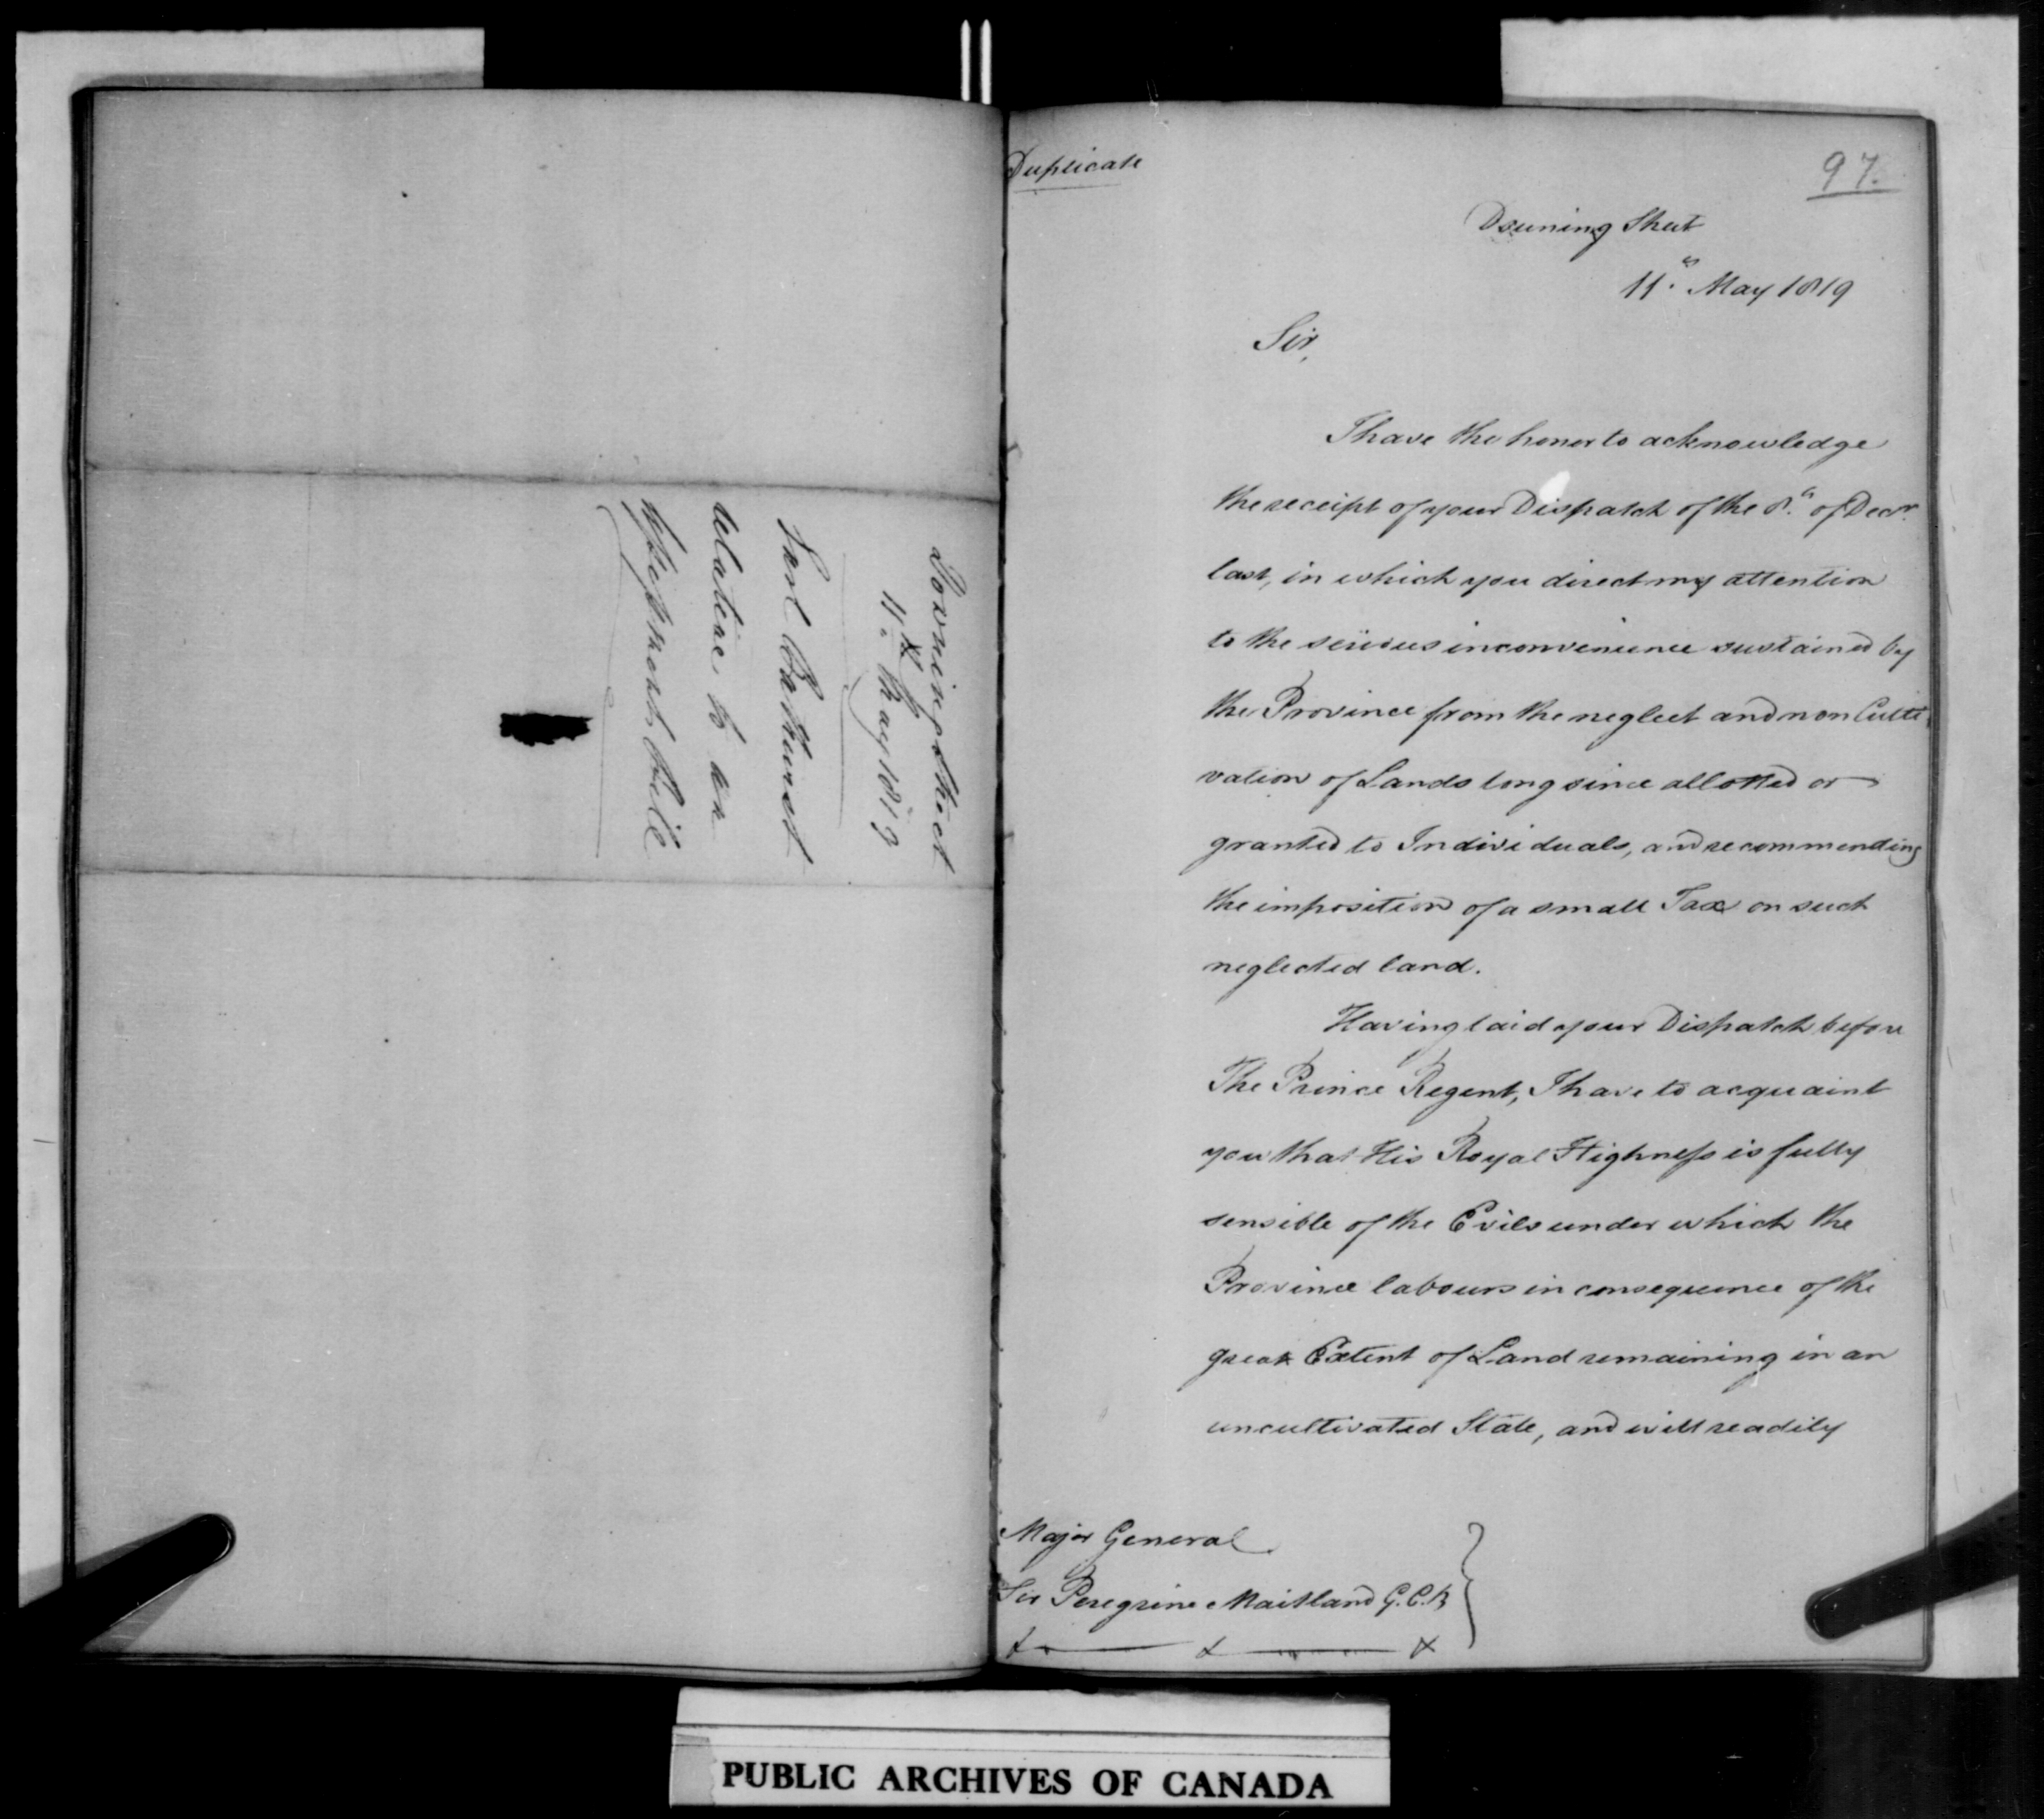 Downing Street
11th May 1819
Earl Bathurst
relative to an
Assessment Bill
Duplicate
97.
Downing Street
11th May 1819
Sir,
I have the honor to acknowledge
the receipt of your Dispatch of the 8th of Decr.
last, in which you direct my attention
to the serious inconvenience sustained by
the Province from the neglect and non Culti
vation of Lands long since allotted or
granted to Individuals, and recommending
the imposition of a small Tax on such
neglected land.
Having laid your Dispatch before
The Prince Regent, I have to acquaint
you that His Royal Highness is fully
sensible of the Evils under which the
Province labours in consequence of the
great Extent of Land remaining in an
uncultivated State, and will readily
Major General
Sir Peregrine Maitland G.C.B
PUBLIC ARCHIVES OF CANADA